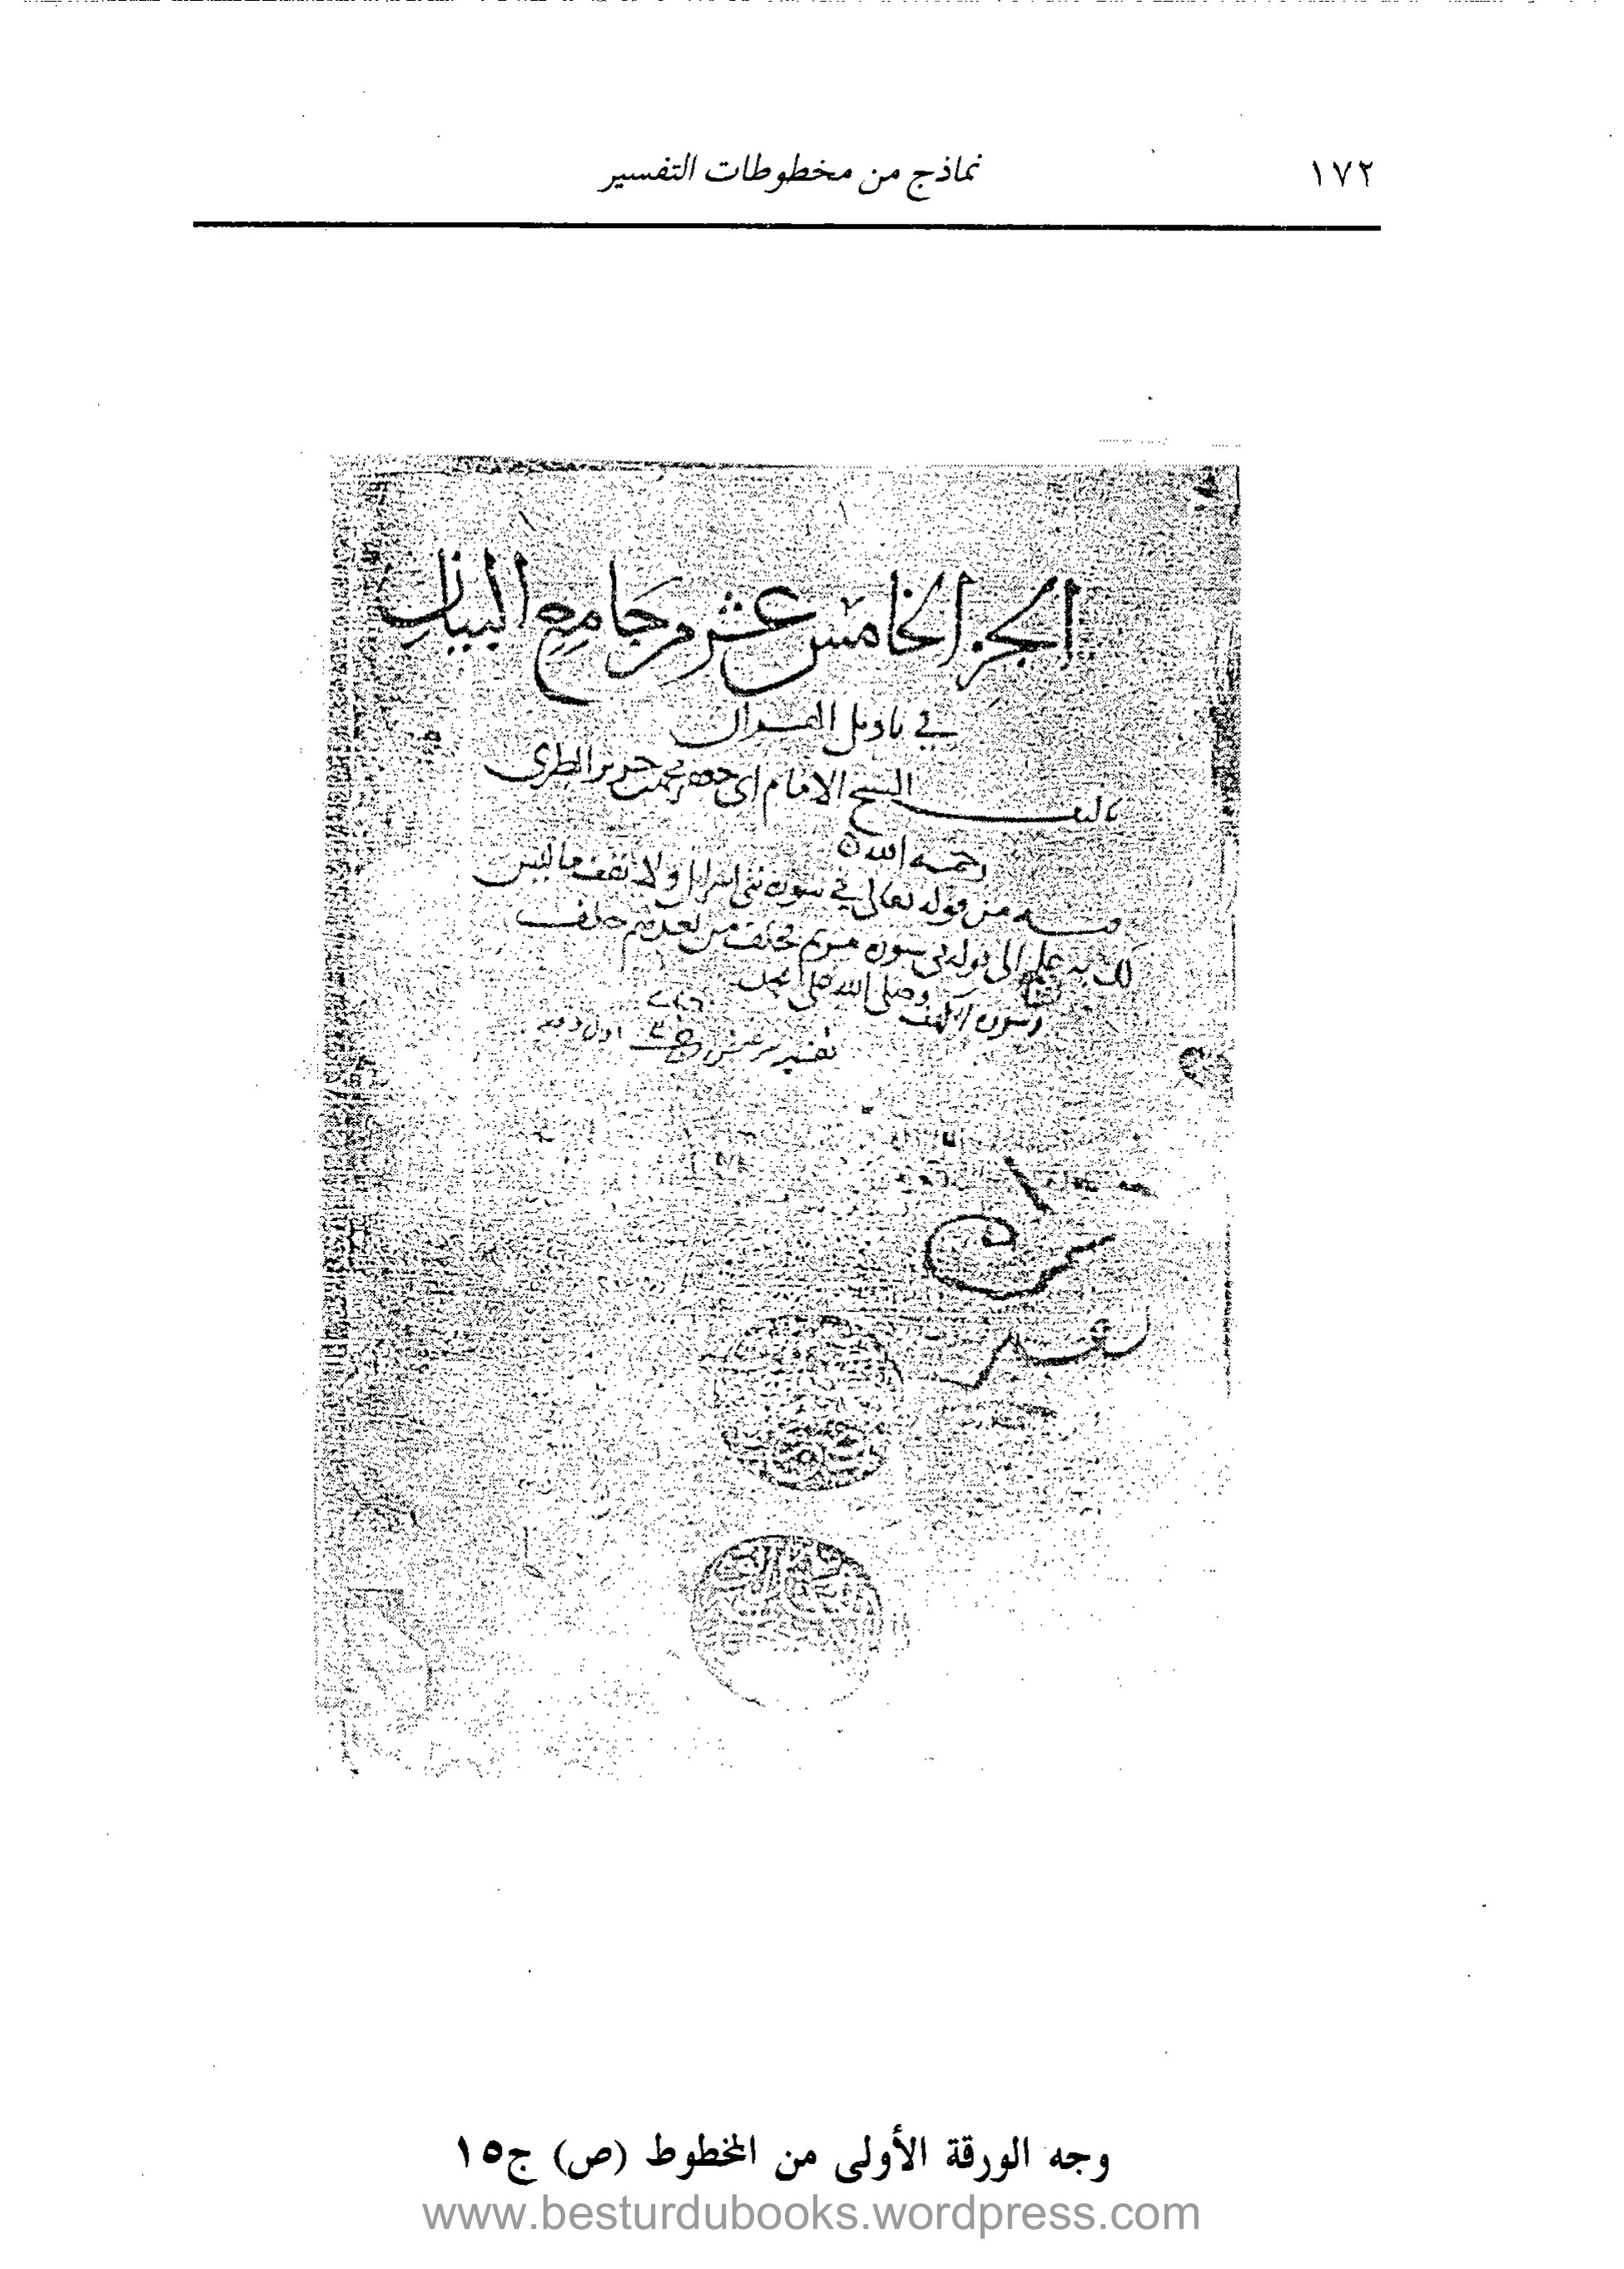 ١٧٢
نماذج من مخطوطات التفسير
الجزء الخامس عشر من جامع البيان
في تأويل القرآن
تاليف الشيخ الامام ابي جعفر محمد بن جرير الطبري
رحمه الله
فيه من قوله تعالى في سورة بني اسرايل ولا تقف ما ليس
لك به علم الى قوله في سورة مريم فخلف من بعدهم خلف
وسورة الكهف وصلى الله على
تفسير
وجه الورقة الأولى من المخطوط (ص) ج١٥
www.besturdubooks.wordpress.com